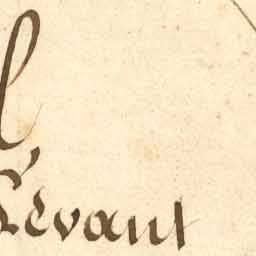 l
Levant